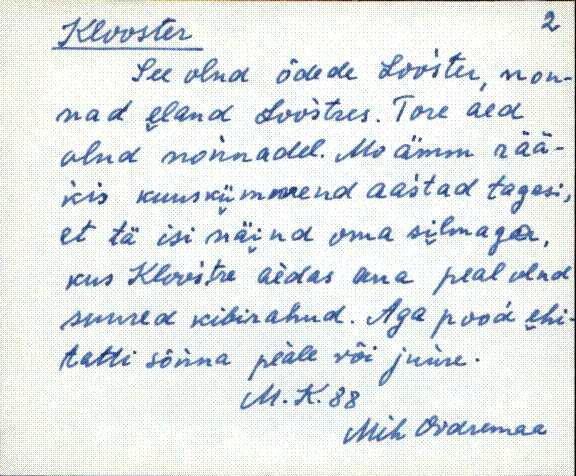 Klooster 2
See olnd õdede Looster, non-
nad eland Loostres. Tore aed
olnd nonnadel. Mo ämm rää-
kis kuuskümmend aastad tagasi,
et tä isi näind oma silmaga,
kus Kloostre aedas ana peal olnd
suured kibirahud. Aga pood ehi-
tatti sõnna peale või juure.
M. K. 88
Mih